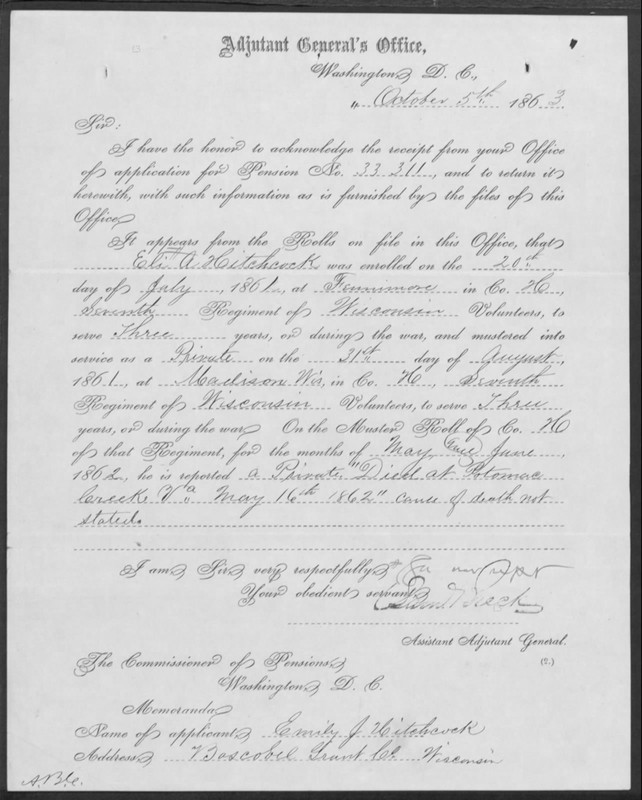 Adjutant General's Office,
Washington, D. C.,
October 5th 1863
Sir:
I have the honor to acknowledge the receipt from your Office
of application for Pension No. 33 311, and to return it
herewith, with such information as is furnished by the files of this
Office
It appears from the Rolls on file in this Office, that
Eli A Hitchcock was enrolled on the 20th
day of July, 1861, at Fennimore in Co. H,
Seventh Regiment of Wisconsin Volunteers, to
serve Three years, or during the war, and mustered into
service as a Private on the 31st day of August,
1861, at Madison Wis, in Co. H, Seventh
Regiment of Wisconsin Volunteers, to serve Three
years, or during the war. On the Muster Roll of Co. H
of that Regiment, for the months of May and June,
1862, he is reported a Private, "Died at Potomac
Creek Va May 16th 1862" cause of death not
stated.
I am Sir very respectfully
Your obedient servant
Assistant Adjutant General.
(2.)
The Commissioner of Pensions,
Washington, D. C.
Memoranda
Name of applicant, Emily J Hitchcock
Address, Boscobel Grant Co. Wisconsin